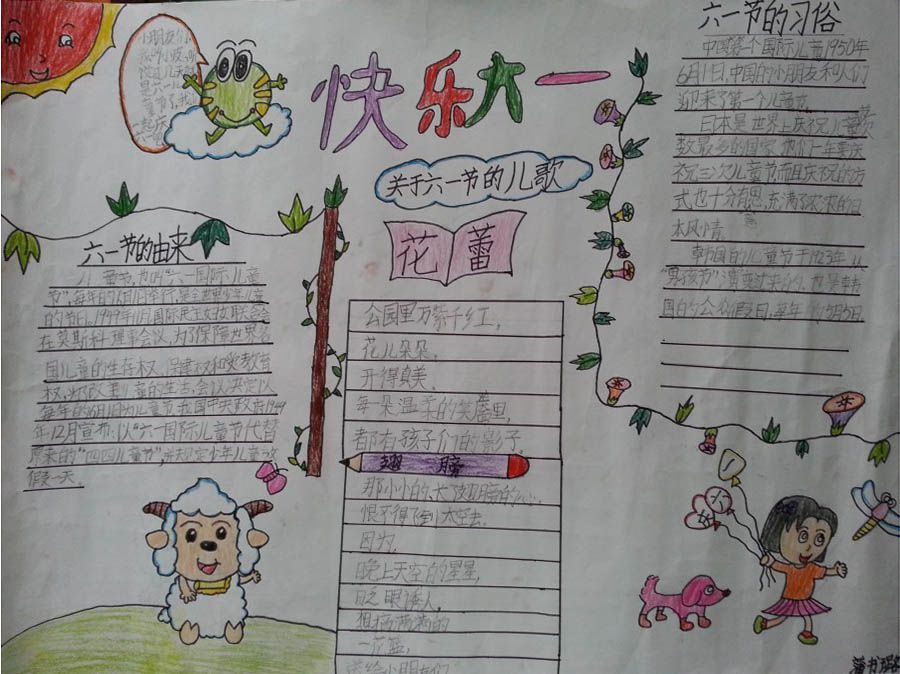 小朋友们
快乐六一
关于六一节的儿歌
花蕾
公园里万紫千红,
花儿朵朵,
开得真美.
每朵温柔的笑靥里,
都有孩子们的影子.
翅膀
那小小的、长翅膀的心,
恨不得飞到太空去.
因为,
晚上天空的星星,
眨眼诱人,
想摘满满的
一花篮,
送给小朋友们
六一节的由来
儿童节,也叫“六一国际儿童
节”,每年的6月1日举行,是全世界少年儿童
的节日。1949年11月,国际民主妇女联合会
在莫斯科理事会议,为了保障世界各
国儿童的生存权、保健权和受教育
权,为了改善儿童的生活,会议决定以
每年的6月1日为儿童节.我国中央政府1949
年12月宣布:以“六一国际儿童节代替
原来的“四四儿童节”,并规定少年儿童放
假一天。
六一节的习俗
中国第一个国际儿童1950年
6月1日,中国的小朋友和人们
迎来了第一个儿童节.
日本是世界上庆祝儿童节次
数最多的国家,他们一年要庆
祝三次儿童节而且庆祝的方
式也十分有意思,充满了浓浓的日
本风情.
韩国的儿童节于1923年从
“男孩节”演变过来的.也是韩
国的公众假日,每年的5月5日
六一